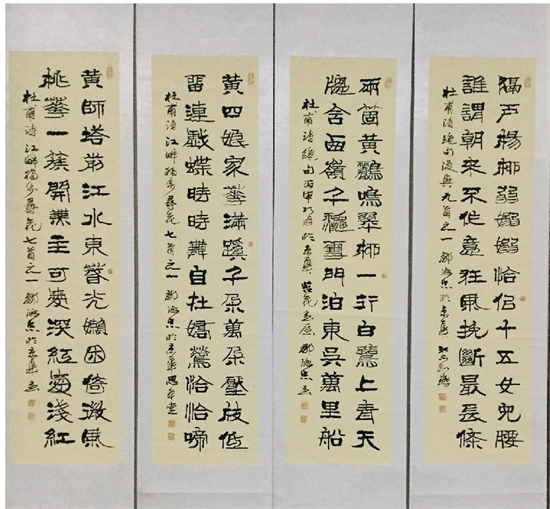 隔戶楊柳弱嫋嫋恰侣十五女兒腰
誰謂朝來不作意狂風挽斷最長條
杜甫詩絕句漫興九首之一
兩箇黃鸝鳴翠柳一行白鷺上青天
窗含西嶺千秋雪門泊東吳萬里船
杜甫詩絕句丙申
黃四娘家花滿蹊千朵萬朵壓枝低
留連戲蝶時時舞自在嬌鶯恰恰啼
杜甫詩江畔獨步尋花七首之一
黃師塔前江水東春光懶困倚微風
桃花一簇開無主可愛深紅愛淺紅
杜甫詩江畔獨步尋花七首之一